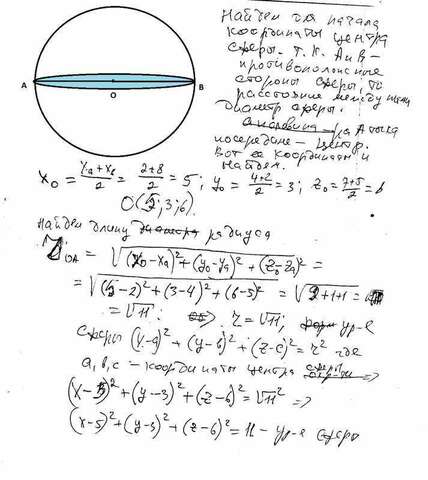 Найдем для начала
координаты центра
сферы. Т.К. А и В –
противоположные
стороны сферы, то
расстояние между ними
диаметр сферы.
а половина – ра А точка
посередине – центр.
Вот ее координаты и
найдем.
A
B
O
x₀ = (xₐ+xв)/2 = (2+8)/2 = 5; y₀ = (4+2)/2 = 3; z₀ = (7+5)/2 = 6
O(5; 3; 6).
найдем длину радиуса
OA = √((x₀-xₐ)²+(y₀-yₐ)²+(z₀-zₐ)²) =
= √((5-2)²+(3-4)²+(6-5)²) = √(9+1+1) =
= √11. r = √11; ур-е
сферы (x-a)²+(y-b)²+(z-c)²=r² где
a, b, c – координаты центра сферы ⇒
(x-5)²+(y-3)²+(z-6)²=√11² ⇒
(x-5)²+(y-3)²+(z-6)²=11 – ур-е сферы